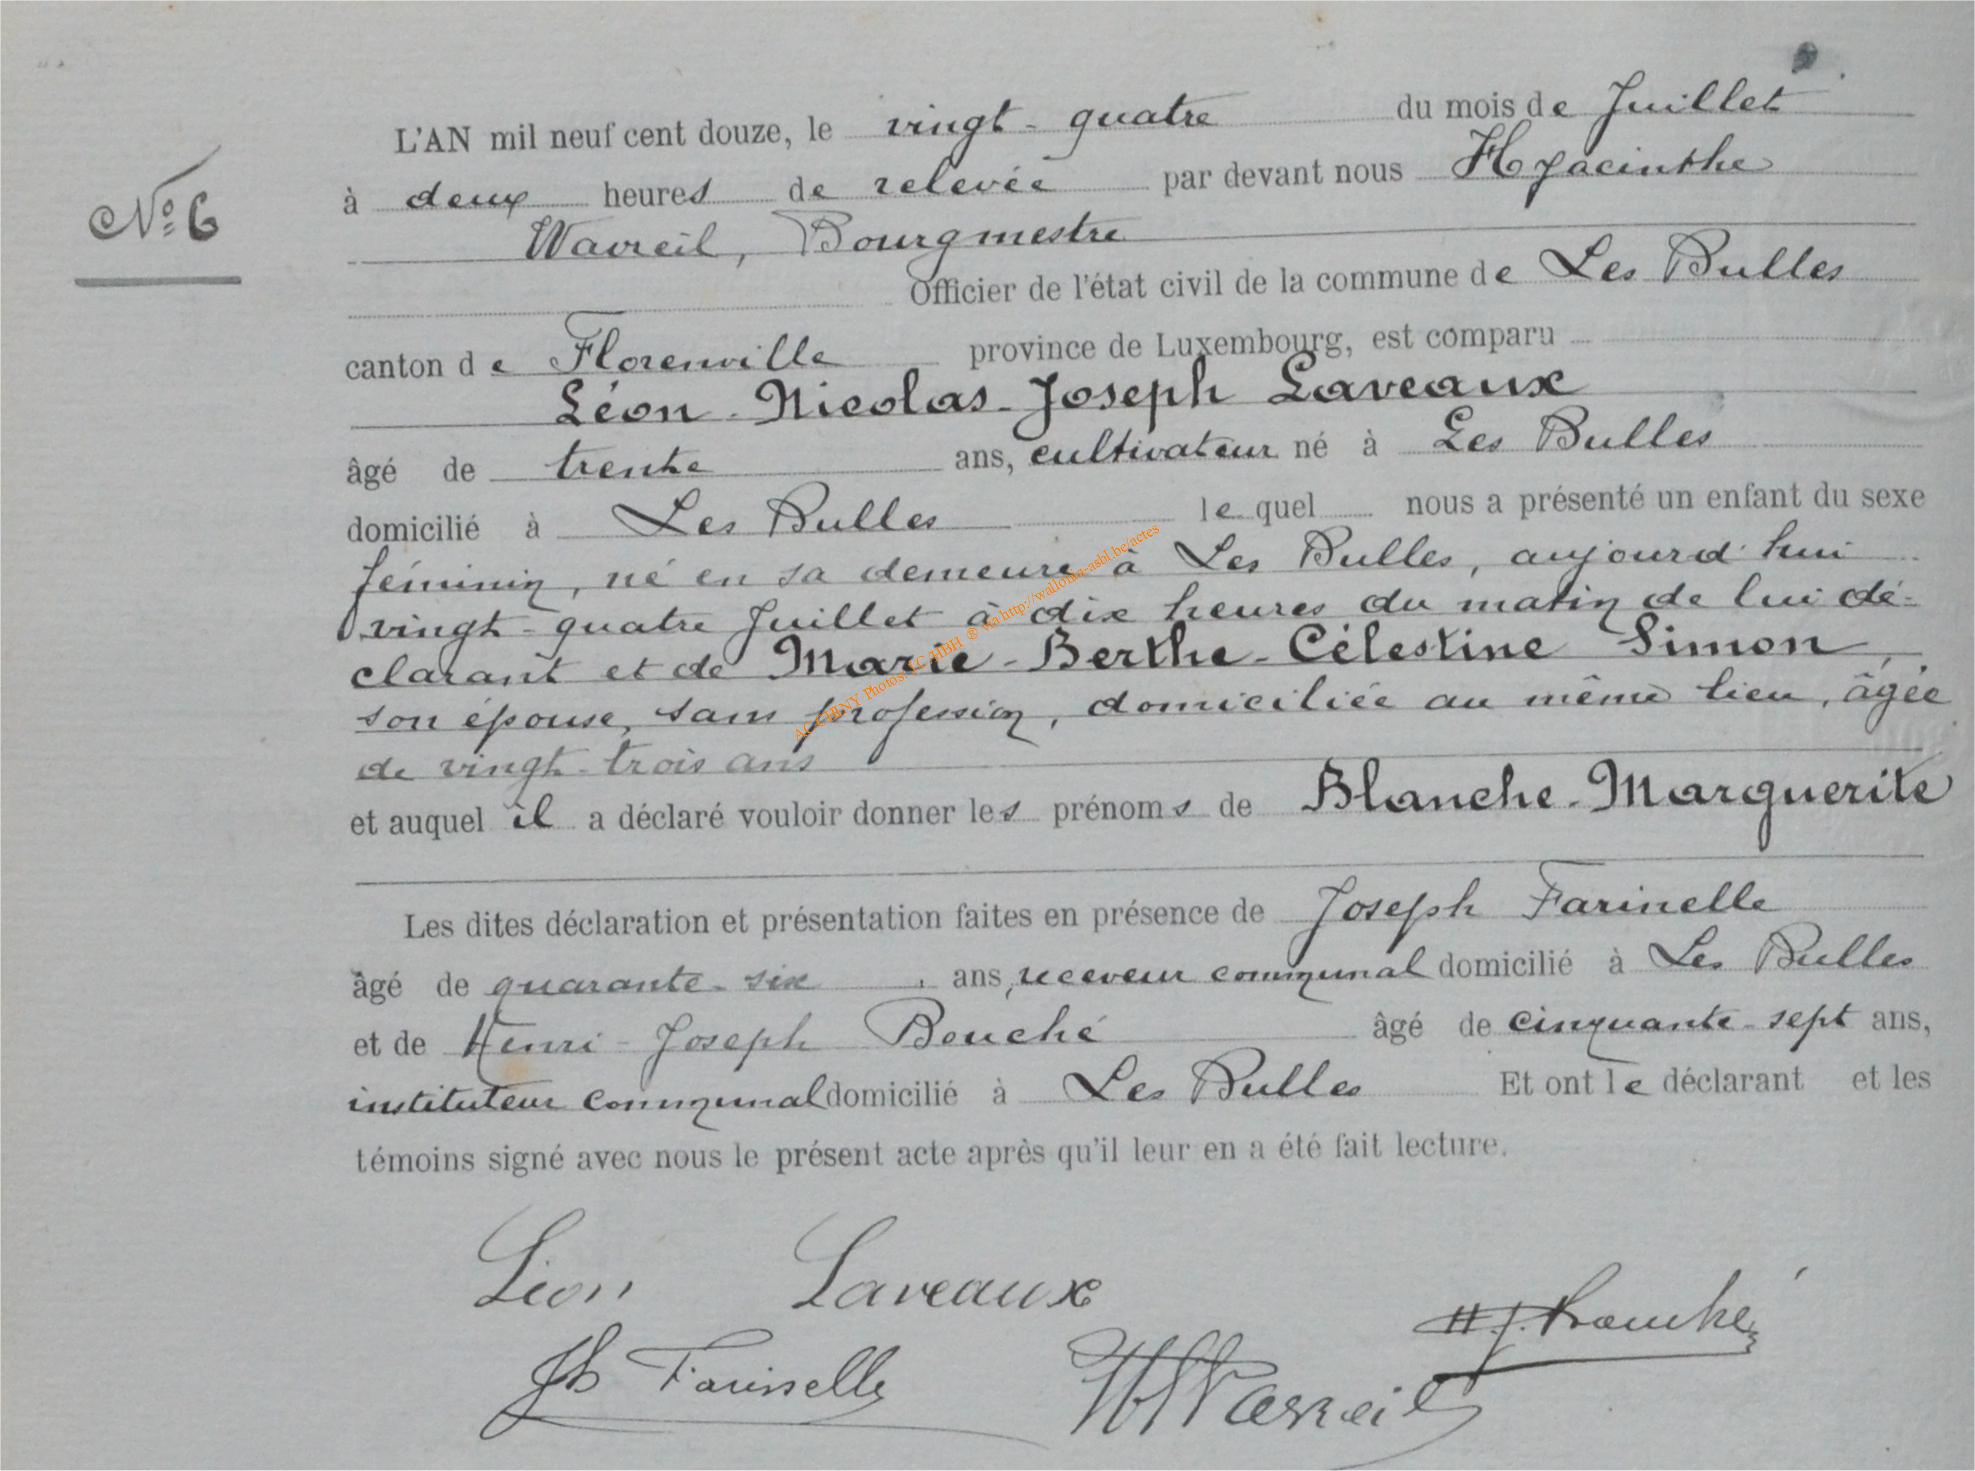 L'AN mil neuf cent douze, le vingt-quatre du mois de Juillet
à deux heures de relevée par devant nous Hyacinthe
Nº 6
Wavreil, Bourgmestre
Officier de l'état civil de la commune de Les Bulles
canton de Florenville province de Luxembourg, est comparu
Léon-Nicolas-Joseph Laveaux
âgé de trente ans, cultivateur né à Les Bulles
domicilié à Les Bulles lequel nous a présenté un enfant du sexe
féminin, né en sa demeure à Les Bulles, aujourd'hui
vingt-quatre Juillet à dix heures du matin de lui dé-
clarant et de Marie-Berthe-Célestine Simon,
son épouse, sans profession, domiciliée au même lieu, âgée
de vingt-trois ans
et auquel il a déclaré vouloir donner les prénoms de Blanche-Marguerite
Les dites déclaration et présentation faites en présence de Joseph Farinelle
âgé de quarante-six ans, receveur communal domicilié à Les Bulles
et de Henri-Joseph Bouché âgé de cinquante-sept ans,
instituteur communal domicilié à Les Bulles Et ont le déclarant et les
témoins signé avec nous le présent acte après qu'il leur en a été fait lecture.
Léon Laveaux
H.J. Bouché
Jh Farinelle
HWavreil
AC CHINY Photos LC-HBH ® via http://wallonia-asbl.be/actes